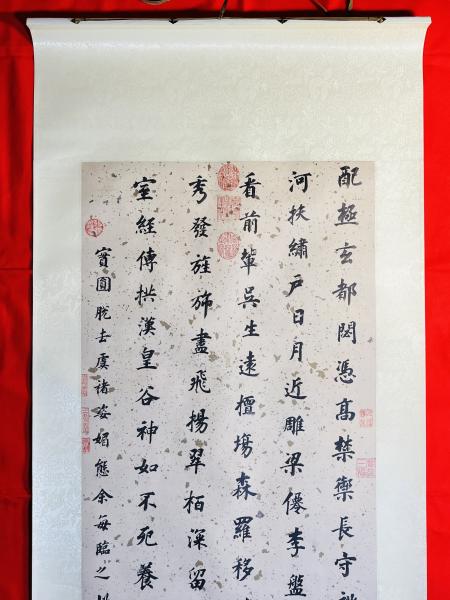 配極玄都閟憑髙禁禦長守
河扶繡戶日月近雕梁僊李盤
看前輩吳生遠檀塲森羅移
秀發旌旆盡飛揚翠栢深留
室經傳拱漢皇谷神如不死養
實圓脫去虞褚姿媚態余每臨之